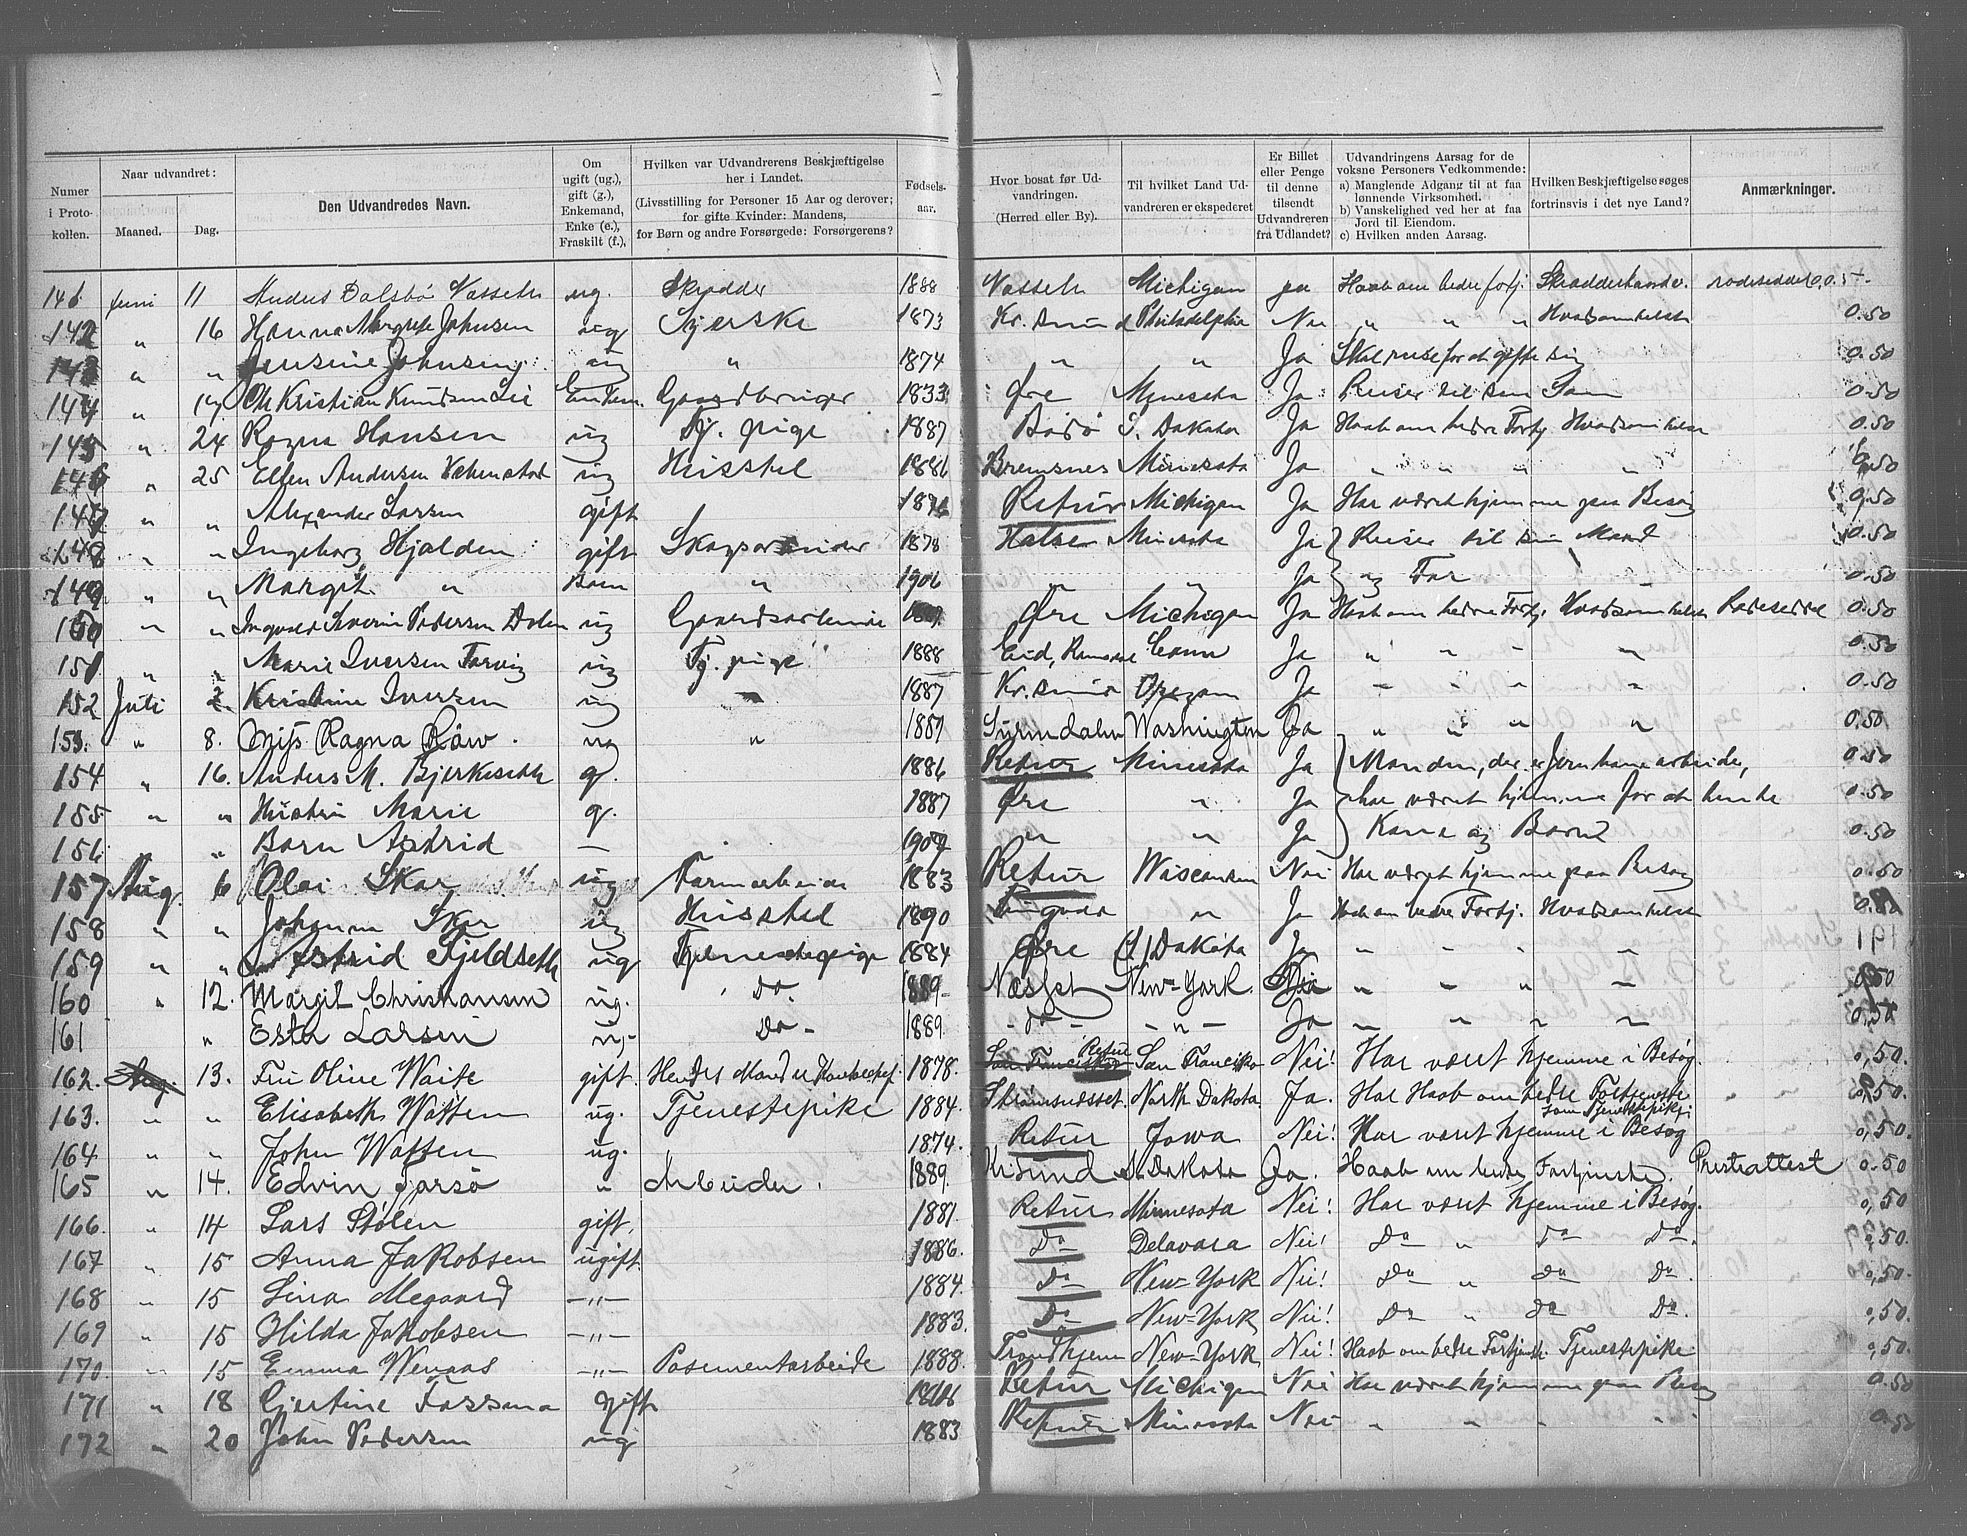 Numer i Protokollen. | Naar udvandret: Maaned. | Dag. | Den Udvandredes Navn. | Om ugift (ug.), gift (g.), Enkemand, Enke (e.), Fraskilt (f.), | Hvilken var Udvandrerens Beskjæftigelse her i Landet. (Livsstilling for Personer 15 Aar og derover; for gifte Kvinder: Mandens, for Børn og andre Forsørgede: Forsørgerens? | Fødsels-aar. | Hvor bosat før Udvandringen. (Herred eller By). | Til hvilket Land Udvandreren er ekspederet | Er Billet eller Penge til denne tilsendt Udvandreren fra Udlandet? | Udvandringens Aarsag for de voksne Personers Vedkommende: a) Manglende Adgang til at faa lønnende Virksomhed. b) Vanskelighed ved her at faa Jord til Eiendom. c) Hvilken anden Aarsag. | Hvilken Beskjæftigelse søges fortrinsvis i det nye Land? | Anmærkninger.
141 Juni 11 Anders Dalsbø Vasseth ug. Skrædder 1888 Vasseth Michigan ja Haab om bedre fortj.
142 " 16 Hanna Margrete Johnsen ug Syerske 1873 Kr.sund Philadelphia Nei " " " Hvadsomhelst 0.50
143 " " Jensine Johnsen ug " 1874 " " Ja Skal reise for at gifte sig 0.50
144 " 17 Ole Kristian Knudsen Lie Enkem. Gaardbruger 1833 Øre Minesota Ja Reiser til sin Søn 0.50
145 " 24 Ragna Hansen ug Tj. pige 1887 Bodø S. Dakota Ja Haab om bedre Fortj Hvadsomhelst 0.50
146 " 25 Ellen Andersen ug Husstel 1886 Bremsnes Minesota Ja " " " " 0.50
147 " " Alexander Larsen gift Retur Michigan Ja Har været hjemme paa Besøg 0.50
148 " " Ingeborg Hjalden gift Skogsarbeider 1878 Halse Minesota Ja Reiser til sin Mand 0.50
149 " " Margit " Barn " 1906 " " Ja og Far 0.50
150 " " Ingvald Severin Pedersen Dalen ug Gaardsarbeider Øre Michigan Ja Haab om bedre Fortj. Hvadsomhelst Rodeseddel 0.50
151 " " Marie Iversen Torvig ug Tj. pige 1888 Eid, Romsdal Ja " " " " 0.50
152 Juli 2. Kristine Iversen ug " 1887 Kr.sund Oregon Ja " " " " 0.50
153. " 8. Miss Ragna Røw. ug " 1887 Surendalen Washington Ja " " " " 0.50
154 " 16. Anders M. Bjerkeseth g. 1886 Retur Minesota Ja Manden, der er Jernbanearbeider, 0.50
155 " " Hustru Marie g. 1887 Øre " Ja har været hjemme for at hente 0.50
156 " " Barn Astrid — 1907 " " Ja Kone og Barn 0.50
157 Aug. 6 Olai Skar ug Farmarbeider 1883 Retur Wisconsin Nei Har været hjemme paa Besøg 0.50
158 " " Johanna Skar ug Husstel 1890 Tingvold " Ja Haab om bedre Fortj. Hvadsomhelst 0.50
159 " " Astrid Fjeldseth ug Tjenestepige 1884 Øre (S) Dakota Ja " " " "
160 " 12. Margit Christiansen ug. Do. 1889 Næsset New-York. " " " " 0.50
161 " Ester Larsen ug. Do - 1889. - do - - " - Ja " " " " 0,50
162. Aug. 13. Fru Oline Waite gift. 1878. San Francisko Retur San Francisko Nei! Har været hjemme i Besøg. 0,50.
163. " " Elisabeth Watten ug. Tjenestepike 1884. Strømsnesset. North Dakota Ja. Har Haab om bedre Fortjeneste som Tjenestepike. 0,50.
164 " " John Watten ug. 1874. Retur Iowa Nei! Har været hjemme i Besøg 0,50.
165 " 14. Edvin Torsø " Arbeider. 1889. Krsund S. Dakota Ja. Haab om bedre Fortjeneste. Prestattest 0.50
166 " 14 Lars Stolen gift. 1881. Retur Minnesota Nei! Har været hjemme i Besøg. 0,50
167 " 15 Anna Jakobsen ugift. 1886. Do Delavara Nei! Do " Do Do. 0,50.
168 " 15 Lina Megaard —"— 1884. Do New-York Nei! Do " Do Do. 0,50.
169 " 15 Hilda Jakobsen —"— 1883. Do New-York Nei! Do " Do Do. 0,50.
170. " 15 Emma Wenaas —"— Posementarbeide 1888. Trondhjem New-York Nei! Haab om bedre Fortjeneste. Tjenestepike. 0,50.
171 " 18 Gjertine Fossmo gift Retur Michigan Nei Har været hjemme paa Besøg 0.50
172 " 20 John Pedersen ug 1883 Retur Minesota Nei " " " " 0.50